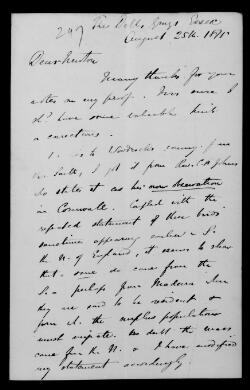 247 The Hall, Grays, Essex
August 25th. 1895
Dear Newton
Many thanks for your
notes on my proof.
have some valuable hints
& corrections.
1. As to Woodcocks coming from
the South, I got it from Rev. C.A. Johns
who states it as his own observation
in Cornwall. Coupled with the
repeated statement of these birds
sometimes appearing earlier in S.
than N. of England, it seems to show
that some do come from the
S. - perhaps from Madeira where
they are said to be resident &
from wh. the surplus population
must migrate. No doubt the mass
come from the N. & I have modified
my statement accordingly.